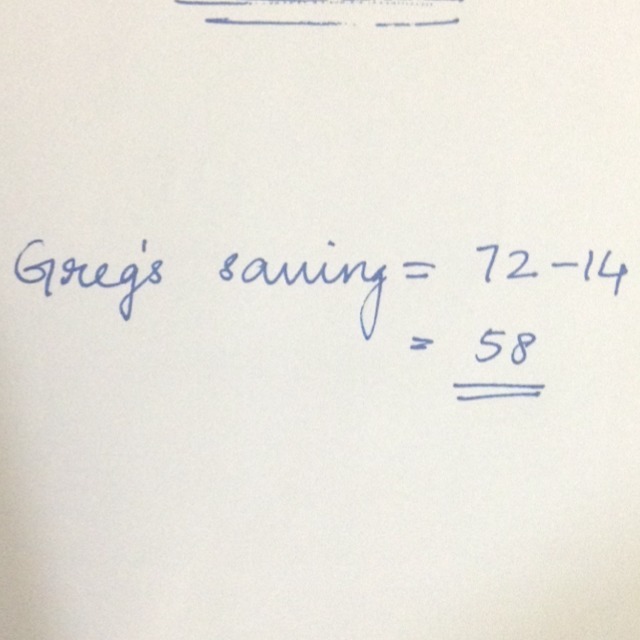 Greg's saving = 72 - 14
= 58